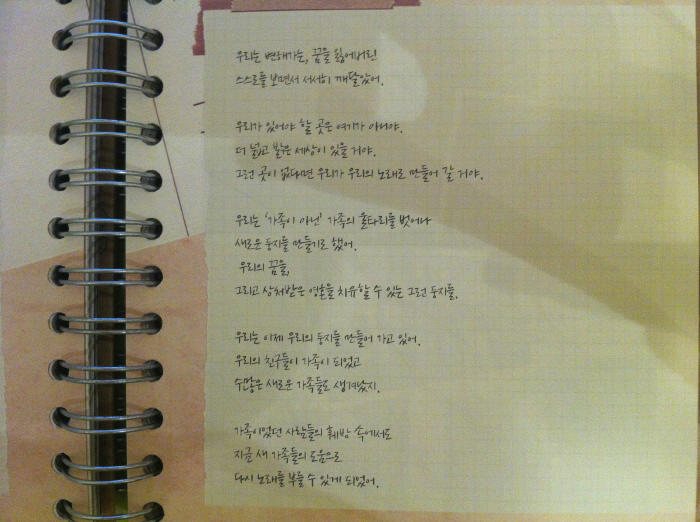 우리는 변해가는, 꿈을 잃어버린
스스로를 보면서 서서히 깨달았어.
우리가 있어야 할 곳은 여기가 아니야.
더 넓고 밝은 세상이 있을 거야.
그런 곳이 없다면 우리가 우리의 노래로 만들어 갈 거야.
우리는 '가족이 아닌' 가족의 울타리를 벗어나
새로운 둥지를 만들기로 했어.
우리의 꿈을,
그리고 상처받은 영혼을 치유할 수 있는 그런 둥지를.
우리는 이제 우리의 둥지를 만들어 가고 있어.
우리의 친구들이 가족이 되었고
수많은 새로운 가족들도 생겨났지.
가족이었던 사람들의 훼방 속에서도
지금 새 가족들의 도움으로
다시 노래를 부를 수 있게 되었어.